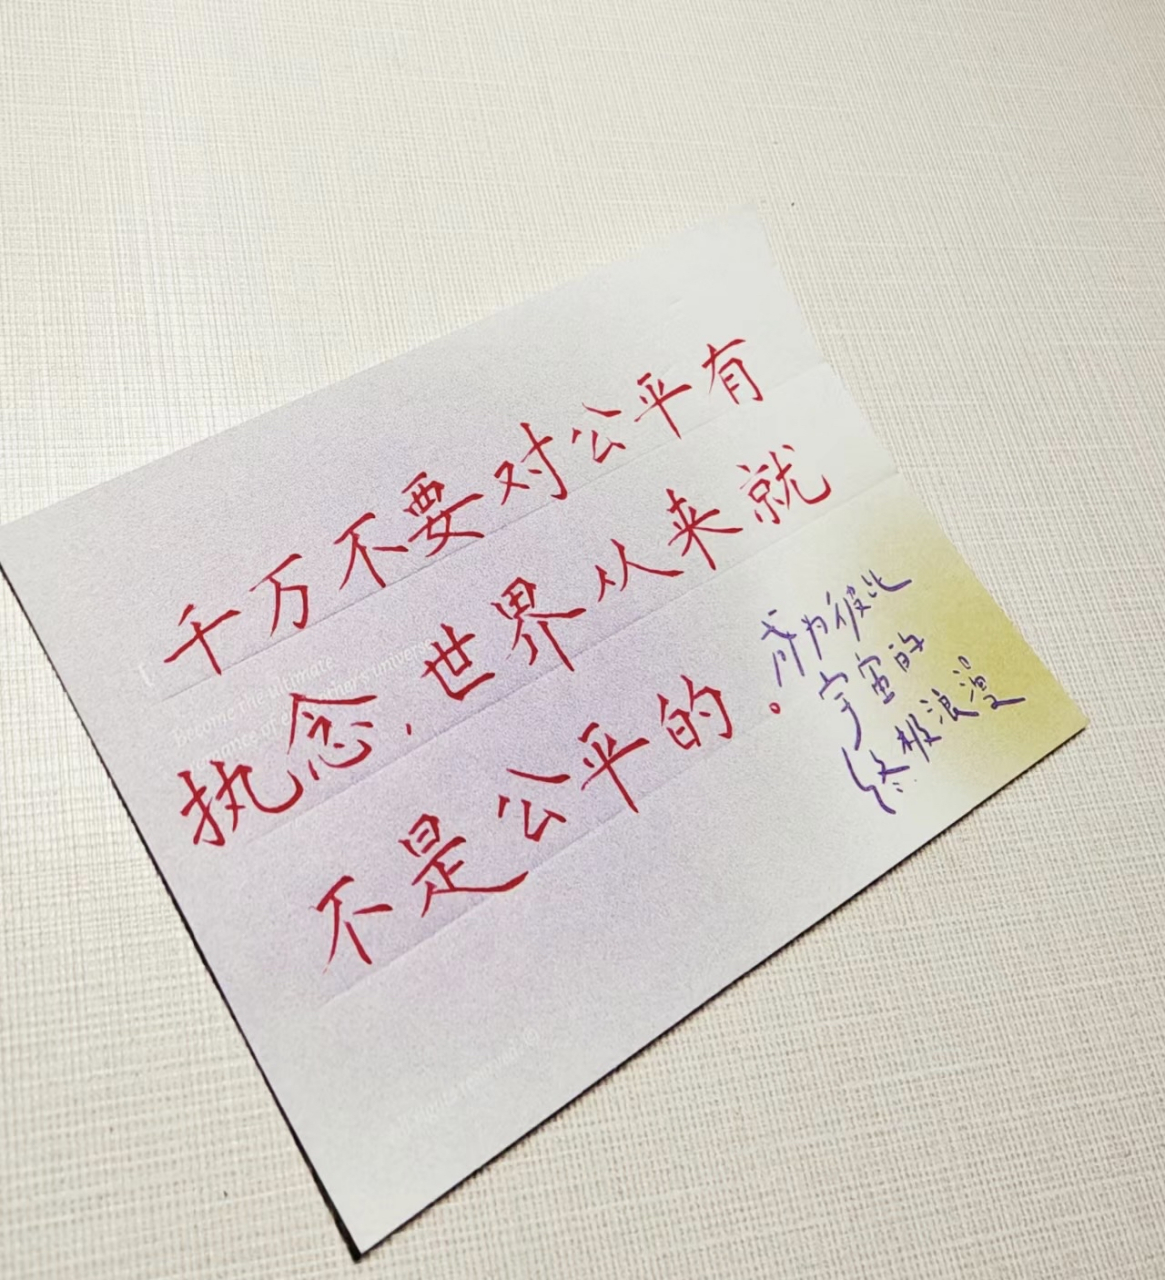 千万不要对公平有
执念，世界从来就
不是公平的。
成为彼此
宇宙的
终极浪漫
Become the ultimate
romance of each other's universe